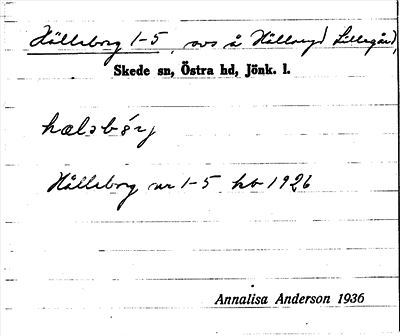 Hälleborg 1-5, avs å Hälleryd Lillegård,
Skede sn, Östra hd, Jönk. l.
hæləbórj
Hälleborg nr 1-5 kb 1926
Annalisa Anderson 1936